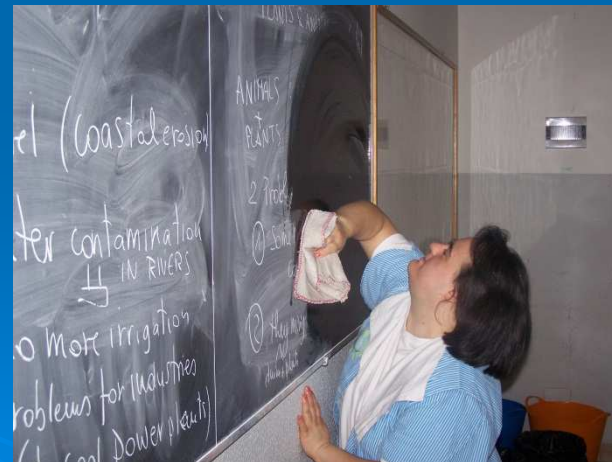 el (coastal erosion)
ter contamination
IN RIVERS
o more irrigation
roblems for industries
power plants)
PLANTS & AN
ANIMALS
PLANTS
2 Prob
①
② they may